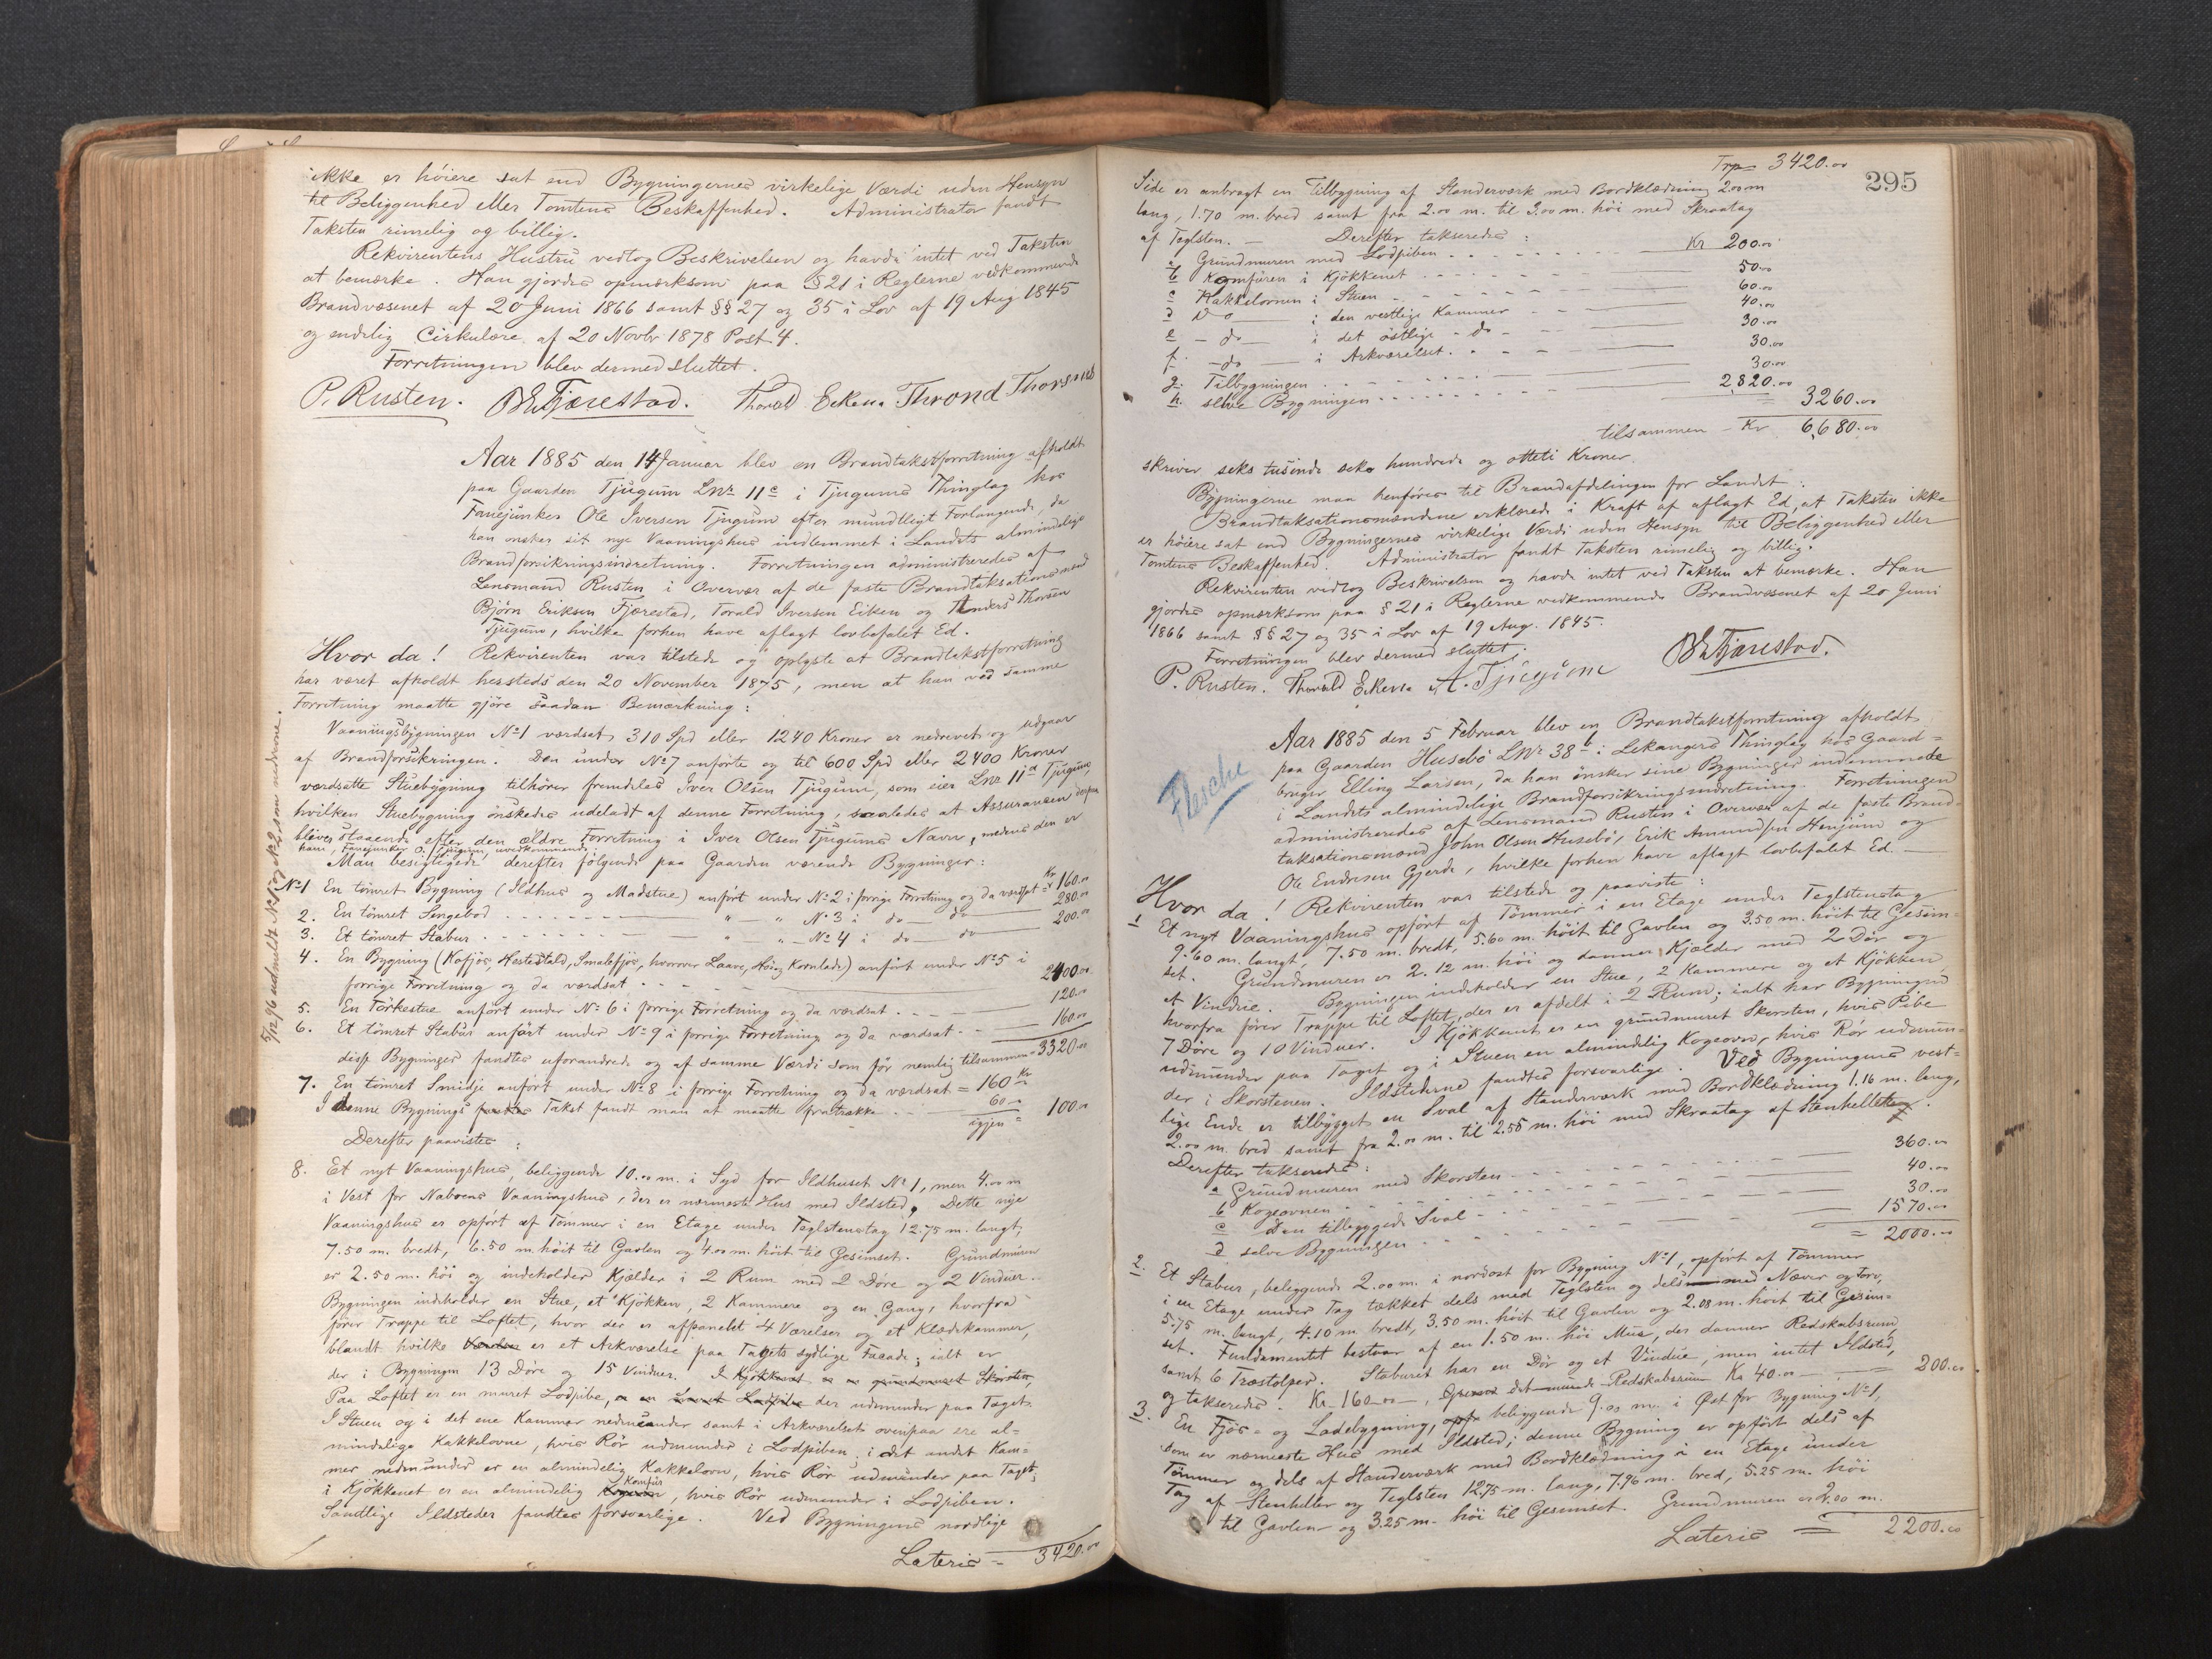 ikke er høiere sat end Bygningernes virkelige Værdi uden Hensyn
til Beliggenhed eller Tomtens Beskaffenhed. Administrator fandt
Taksten rimelig og billig.
Rekvirentens Hustru vedtog Beskrivelsen og havde intet ved Taksten
at bemærke. Han gjordes opmærksom paa § 21 i Reglerne vedkommende
Brandvæsenet af 20 Juni 1866 samt §§ 27 og 35 i Lov af 19 Aug 1845
og endelig Cirkulære af 20 Novbr 1878 Post 4.
Forretningen blev dermed sluttet.
P. Rusten. BEFjærestad. Thorald Eken Thrond Thorsnes
Aar 1885 den 14 Januar blev en Brandtakstforretning afholdt
paa Gaarden Tjugum Lnr 11c i Tjugums Thinglag hos
Fanejunker Ole Iversen Tjugum efter mundtligt Forlangende, da
han ønsker sit nye Vaaningshus indlemmet i Landets almindelige
Brandforsikringsindretning. Forretningen administreredes af
Lensmand Rusten i Overvær af de faste Brandtaksationsmænd
Bjørn Eriksen Fjærestad, Torald Iversen Eiken og Anders Thorsen
Tjugum, hvilke forhen have aflagt lovbefalet Ed.
Hvor da! Rekvirenten var tilstede og oplyste at Brandtakstforretning
har været afholdt hersteds den 20 November 1875, men at han ved samme
Forretning maatte gjøre saadan Bemærkning:
Vaaningsbygningen No 1 værdsat 310 Spd eller 1240 Kroner er nedrevet og udgaar
af Brandforsikringen. Den under No 7 anførte og til 600 Spd eller 2400 Kroner
værdsatte Stuebygning tilhører fremdeles Iver Olsen Tjugum, som eier Lnr 11d Tjugum,
hvilken Stuebygning ønskedes udeladt af denne Forretning, saaledes at Assurancen derpaa
bliver staaende efter den ældre Forretning i Iver Olsen Tjugums Navn, medens den er
ham, Fanejunker O. Tjugum, uvedkommende.
Man besigtigede derefter følgende paa Gaarden værende Bygninger:
No 1 En tømret Bygning (Ildhus og Madstue) anført under No 2 i forrige Forretning og da værdsat = Kr 160.00
2. En tømret Sengebod - - - " - " No 3 i do do 280.00
3. Et tømret Stabur - - - " - " - No 4 i do do 200.00
4. En Bygning (Kofjøs, Hestestald, Smalefjøs, hvorover Laave, Høi og Kornlade) anført under No 5 i
forrige Forretning og da værdsat - - - 2400.00
5. En Tørkestue anført under No 6 i forrige Forretning og da værdsat - - - 120.00
6. Et tømret Stabur anført under No 9 i forrige Forretning og da værdsat - - 160.00
disse Bygninger fandtes uforandrede og af samme Værdi som før nemlig tilsammen = 3320.00
7. En tømret Smidje anført under No 8 i forrige Forretning og da værdsat = 160 Kr
I denne Bygnings Takst fandt man at maatte fratrække - - 60 "
igjen = 100.00
Derefter paavistes:
8. Et nyt Vaaningshus, beliggende 10.00 m. i Syd for Ildhuset No 1, men 4.00 m
i Vest for Naboens Vaaningshus, der er nærmeste Hus med Ildsted. Dette nye
Vaaningshus er opført af Tømmer i en Etage under Teglstenstag 12.75 m. langt,
7.50 m. bredt, 6.50 m. høit til Gavlen og 4.00 m. høit til Gesimset. Grundmuren
er 2.50 m. høi og indeholder Kjælder i 2 Rum med 2 Døre og 2 Vinduer.
Bygningen indeholder en Stue, et Kjøkken, 2 Kammere og en Gang, hvorfra
fører Trappe til Loftet, hvor der er afpanelet 4 Værelser og et Klædekammer,
blandt hvilke er et Arkværelse paa Tagets sydlige Facade; ialt er
der i Bygningen 13 Døre og 15 Vinduer. I Kjøkkenet er en grundmuret Skorsten,
Paa Loftet er en muret Lodpibe, der udmunder paa Taget.
I Stuen og i det ene Kammer nedenunder samt i Arkværelset ovenpaa ere al-
mindelige Kakkelovne, hvis Rør udmunder i Lodpiben, i det andet Kam-
mer nedenunder er en almindelig Kakkelovn, hvis Rør udmunder paa Taget,
i Kjøkkenet er en almindelig Komfur, hvis Rør udmunder i Lodpiben.
Samtlige Ildsteder fandtes forsvarlige. Ved Bygningens nordlige
Lateris = 3420.00
5/12 96 udmeldt No 1 og No 2 som nedrevne.
Trp = 3420.00
295
Side er anbragt en Tilbygning af Standerværk med Bordklædning 2.00 m
lang, 1.70 m. bred samt fra 2.00 m. til 3.00 m. høi med Skraatag
af Teglsten. — Derefter takseredes:
a Grundmuren med Lodpiben - - - Kr 200.00
b Komfuren i Kjøkkenet - - - 50.00
c Kakkelovnen i Stuen - - - 60.00
d Do i den vestlige Kammer - - 40.00
e - do - i det østlige - do - - 30.00
f. - do - i Arkværelset - - - 30.00
g. Tilbygningen - - - 30.00
h. selve Bygningen - - - 2820.00
= 3260.00
tilsammen - Kr 6,680.00
skriver seks tusinde seks hundrede og otteti Kroner.
Bygningerne maa henføres til Brandafdelingen for Landet:
Brandtaksationsmændene erklærede i Kraft af aflagt Ed, at Taksten ikke
er høiere sat end Bygningernes virkelige Værdi uden Hensyn til Beliggenhed eller
Tomtens Beskaffenhed. Administrator fandt Taksten rimelig og billig.
Rekvirenten vedtog Beskrivelsen og havde intet ved Taksten at bemærke. Han
gjordes opmærksom paa § 21 i Reglerne vedkommende Brandvæsenet af 20 Juni
1866 samt §§ 27 og 35 i Lov af 19 Aug. 1845.
Forretningen blev dermed sluttet;
P. Rusten. Thorald Ekena A. Tjugum BEFjærestad.
Flesche
Aar 1885 den 5 Februar blev en Brandtakstforretning afholdt
paa Gaarden Husebø LNr 38 i Lekangers Thinglag hos Gaard-
bruger Elling Larsen, da han ønsker sine Bygninger indlemmede
i Landets almindelige Brandforsikringsindretning. Forretningen
administreredes af Lensmand Rusten i Overvær af de faste Brand-
taksationsmænd John Olsen Husebø, Erik Amundsen Henjum og
Ole Endresen Gjerde, hvilke forhen have aflagt lovbefalet Ed. —
Hvor da! Rekvirenten var tilstede og paaviste:
1 Et nyt Vaaningshus opført af Tømmer i en Etage under Teglstenstag
9.60 m. langt, 7.50 m. bredt, 5.60 m. høit til Gavlen og 3.50 m. høit til Gesim-
set. Grundmuren er 2.12 m. høi og danner Kjælder med 2 Dør og
et Vindue. Bygningen indeholder en Stue, 2 Kammere og et Kjøkken,
hvorfra fører Trappe til Loftet, der er afdelt i 2 Rum; ialt har Bygningen
7 Døre og 10 Vinduer. I Kjøkkenet er en grundmuret Skorsten, hvis Pibe
udmunder paa Taget og i Stuen en almindelig Kogeovn, hvis Rør udmun-
der i Skorstenen. Ildstederne fandtes forsvarlige. Ved Bygningens vest-
lige Ende er tilbygget en Sval af Standerværk med Bordklædning 1.16 m. lang,
2.00 m. bred samt fra 2.00 m. til 2.55 m. høi med Skraatag af Stenheller.
Derefter takseredes:
a Grundmuren med Skorsten - - - 360.00
b Kogeovnen - - - 40.00
c Den tilbyggede Sval - - - 30.00
d selve Bygningen - - - 1570.00
= 2000.00
2. Et Stabur, beliggende 2.00 m. i nordost for Bygning No 1, opført af Tømmer
i en Etage under Tag tækket dels med Teglsten og dels med Næver og Torv,
5.75 m. langt, 4.10 m. bredt, 3.50 m. høit til Gavlen og 2.08 m. høit til Gesim-
set. Fundamentet bestaar af en 1.50 m. høi Mur, der danner Redskabsrum,
samt 6 Træstolper. Staburet har en Dør og et Vindue, men intet Ildsted,
og takseredes. Kr. 160.00, det murede Redskabsrum Kr 40.00 — = 200.00
3. En Fjøs- og Ladebygning, beliggende 9.00 m. i Øst for Bygning No 1,
som er nærmeste Hus med Ildsted; denne Bygning er opført dels af
Tømmer og dels af Standerværk med Bordklædning i en Etage under
Tag af Stenheller og Teglsten 12.75 m. lang, 7.96 m. bred, 5.25 m. høi
til Gavlen og 3.25 m. høi til Gesimset. Grundmuren er 2.00 m.
Lateris = 2200.00